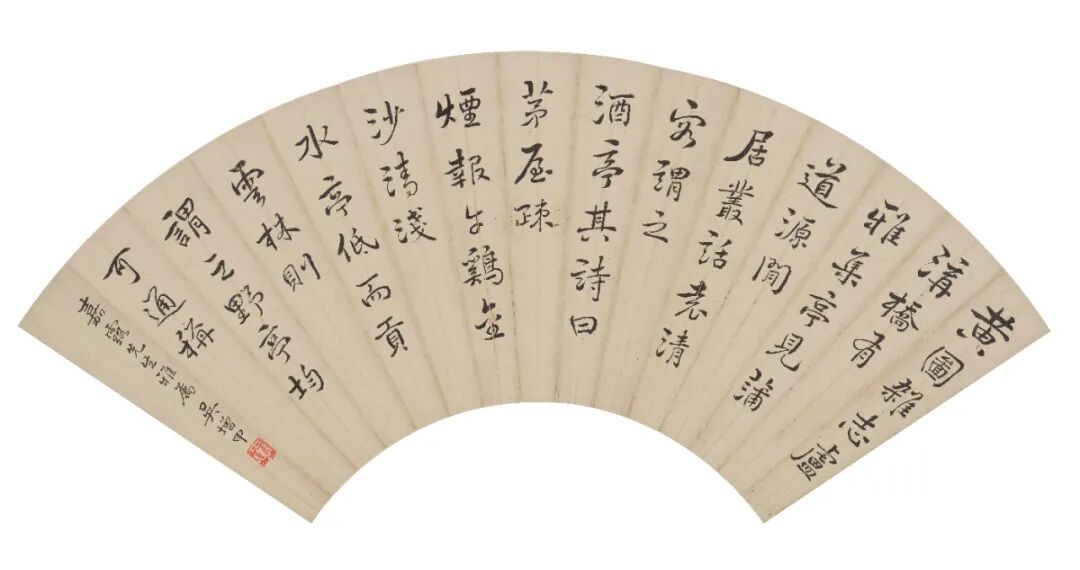 黄圖雜志盧
溝橋有
雅集亭見蒲
道源閒
居叢話袁清
容謂之
酒亭其詩曰
茅屋疎
煙報午鷄金
沙清淺
水亭低而貢
雲林則
謂之野亭均
可通稱
嘉先生雅屬 吴增甲